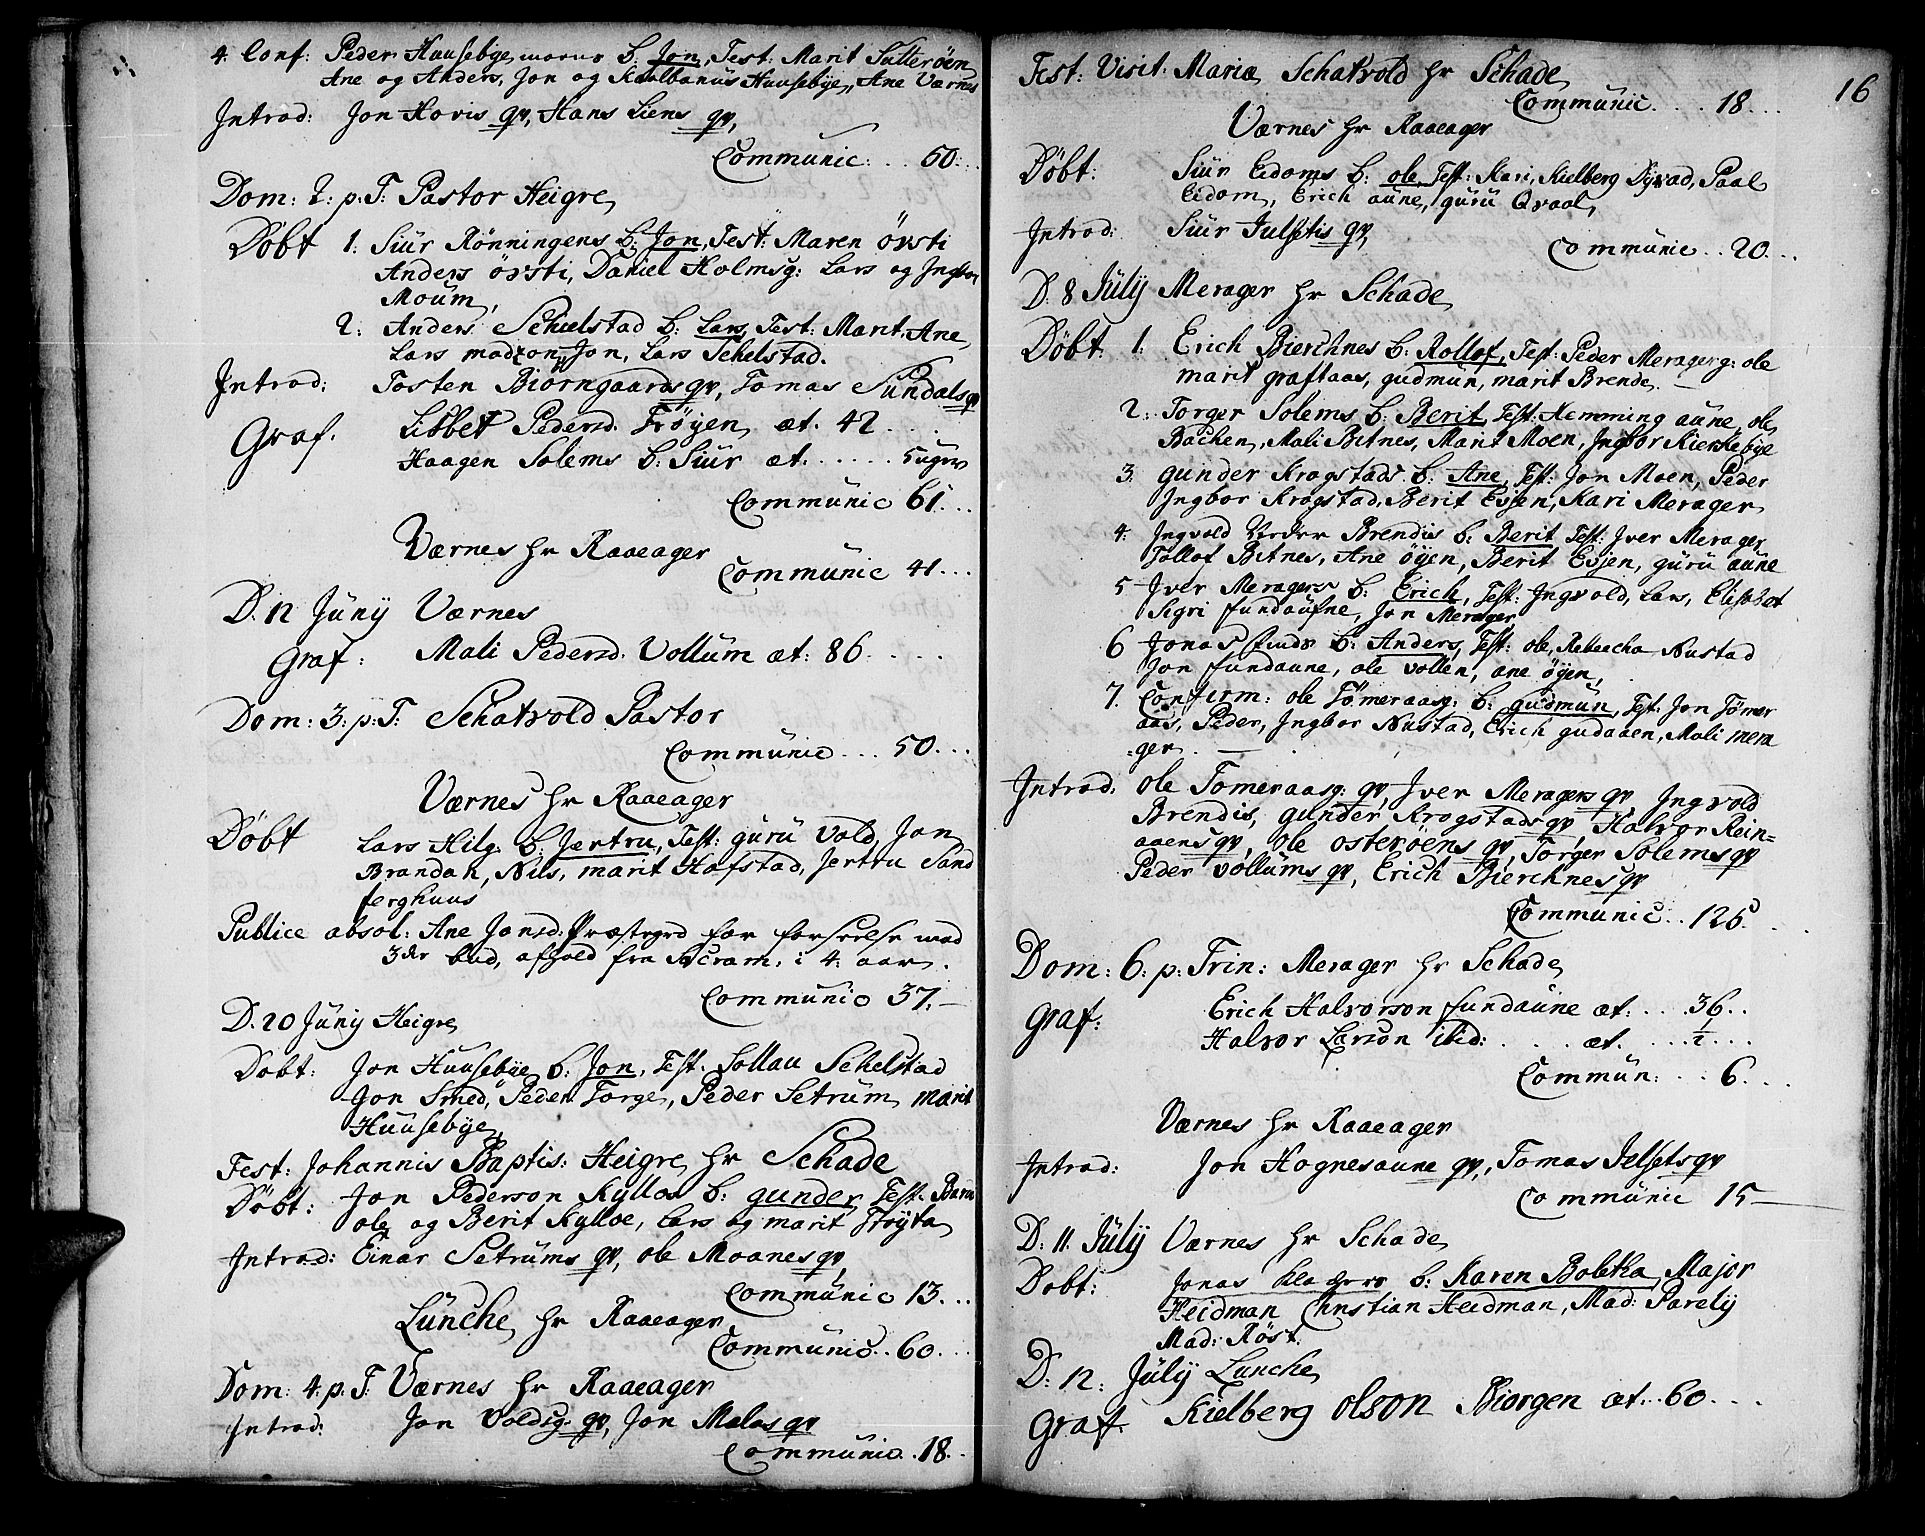 4. Conf: Peder Huusebye b: Jon, Test: Marit Sutterøen
Ane og Anders, Jon og Huusebye, Ane Værnes
Introd: Jon Hovis qv, Hans Liens qv,
Communic: . . 50. . .
Dom: 2: p: T: Pastor Heigre
Døbt 1: Siur Rønningens b: Jon, Test: Maren Øvsti
Anders Øvsti, Daniel Holmsg: Lars og Ingbor
Moum,
2: Anders Schielstad b: Lars, Test: Marit, Ane
Lars Jon, Lars Schelstad.
Introd: Tosten Biørngaards qv, Tomas Sundals qv
Graf. Libbet Pedersd. Frøyen æt. 42 . . .
Haagen Solems b: Siur æt. . . . . . 5 uger
Communic 61. . .
Værnes hr Raaeager
Communic 41. . .
D. 12 Juny Værnes
Graf: Mali Pedersd. Vollum æt: 86. . . .
Dom: 3: p: T: Schatvold Pastor
Communic . . . 50. . .
Værnes hr Raaeager
Døbt Lars Hilg: b: Jertru, Test: guru Vold, Jon
Brandah, Nils, marit Hofstad, Jertru Sand
ferghuus
Publice absol: Ane Jonsd: Præstegrd for forseelse mod
3die bud, afhold fra Sacram: i 4. aar.
Communic 37. —
D. 20 Juny Heigre
Døbt: Jon Huusebye b: Jon, Test. Sollau Schelstad
Jon Smed, Peder Forge, Peder Setrum, marit
Huusebye
Fest: Johannis Baptis: Heigre hr Schade
Døbt: Jon Pederson Kylloe b: gunder, Test:
ole og Berit Kylloe, Lars og marit Frøyta
Introd: Einar Setrums qv, ole Moanes qv,
Communic 13. . .
Lunche hr Raaeager
Communic. . 60. . . .
Dom: 4. p. T. Værnes hr Raaeager
Introd: Jon Voldsg: qv, Jon Malas qv
Communic. . 18. .
16
Fest: Visit. Mariæ Schatvold hr Schade
Communic. . . . 18. . .
Værnes hr Raaeager
Døbt: Siur Eidoms b: ole, Test: Kari, Kielberg Dyrad, Paal
Eidom, Erich aune, guru Qvaal,
Introd: Siur Julsetis qv,
Communic . . 20. . .
D. 8 July Merager hr Schade
Døbt. 1: Erich Bierchnes b: Rollof, Test: Peder Meragerg: ole
marit graftaas, gudmun, marit Brende.
2: Torger Solems b: Berit, Test: Hemming aune, ole
Bachen, Mali Bitnes, Marit Moen, Ingbor Kierchebye
3. gunder Krogstads b: Ane, Test: Jon Moen, Peder
Ingbor Krogstad, Berit Evjen, Kari Merager
4. Ingvold Brendis b: Berit Test: Iver Merager
Tollof Bitnes, Ane Øyen, Berit Evjen, guru aune
5 Iver Meragers b: Erich, Test: Ingvold, Lars, Elisabet
Sigri fundaufne, Jon Merager
6 Jonas b: Anders, Test: ole, Rebecha Nustad
Jon fundaune, ole Vollen, ane Øyen,
7. Confirm: ole Tømeraasg: b: gudmun, Test: Jon Tømer
aas, Peder, Ingbor Nustad, Erich gudaaen, Mali mera
=ger. —
Introd: ole Tomeraasg: qv, Iver Meragers qv, Ingvold
Brendis, gunder Krogstads qv, Halvor Rein=
aaens qv, ole osterøens qv, Torger Solems qv
Peder Vollums qv, Erich Bierchnes qv
Communic. . 126. . .
Dom: 6: p: Trin: Merager hr Schade
Graf: Erich Halvorson fundaune æt: . . . 36. .
Halvor Larson ibid: . . . . æt. . . . . ½. . .
Commun: . . . 6. . .
Værnes hr Raaeager
Introd: Jon Hognesaune qv, Tomas Jelsets qv
Communic 15 —
D: 11. July Værnes hr Schade
Døbt: Jonas b: Karen Boletha, Major
Heidman Christian Heidman, Mad: Parely
Mad: Røst.
D: 12: July Lunche
Graf. Kielberg olson Biorgen æt. . . 60. . . .